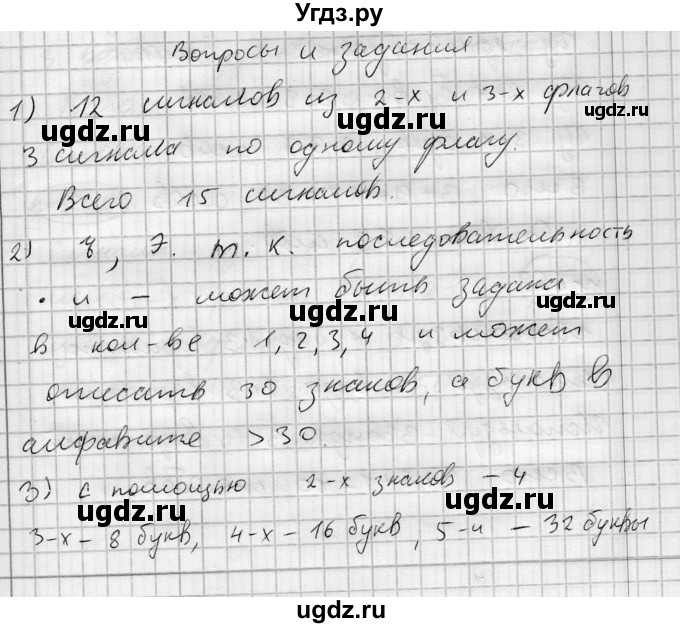 Угдз.ру
Вопросы и задания
1) 12 сигналов из 2-х и 3-х флагов
ugdz.ru ugdz.ru
3 сигнала по одному флагу.
Всего 15 сигналов.
ugdz.ru ugdz.ru
2) Э. т.к. последовательность
• и – может быть задана
ugdz.ru ugdz.ru
в кол-ве 1, 2, 3, 4 и может
описать 30 знаков, а букв в
ugdz.ru ugdz.ru
алфавите >30.
3) с помощью 2-х знаков – 4
ugdz.ru ugdz.ru
3-х – 8 букв, 4-х – 16 букв, 5-и – 32 буквы
ugdz.ru ugdz.ru
ugdz.ru